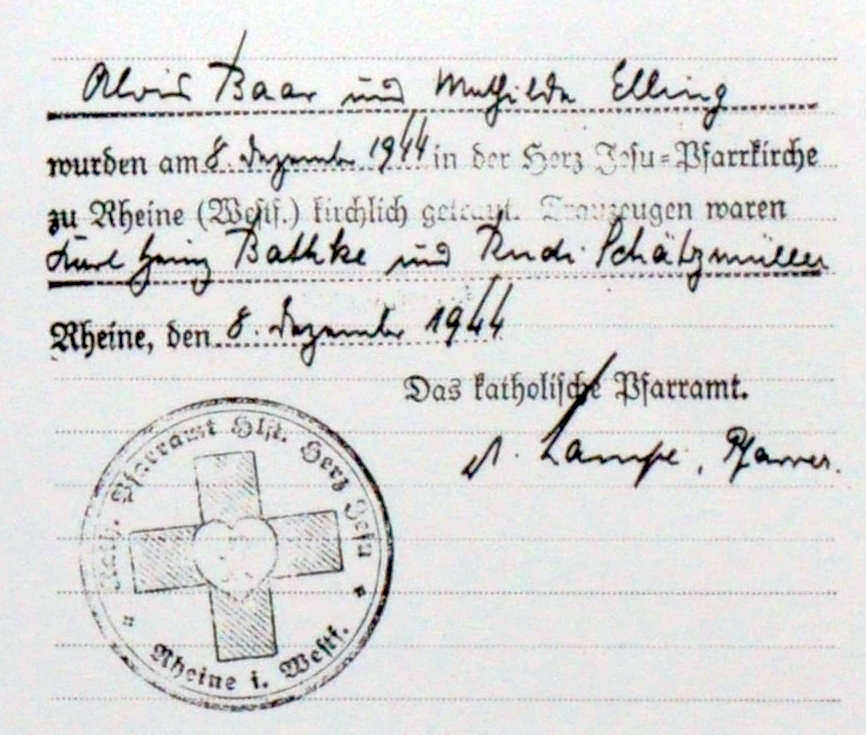 Alois Baar und Mathilde Elling
wurden am 8. Dezember 1944 in der Herz Jesu-Pfarrkirche
zu Rheine (Westf.) kirchlich getraut. Trauzeugen waren
Karl Heinz Bathke und Rudi Schätzmüller
Rheine, den 8. Dezember 1944
Das katholische Pfarramt.
Lampe, Pfarrer.
Kath. Pfarramt Hlst. Herz Jesu
Rheine i. Westf.